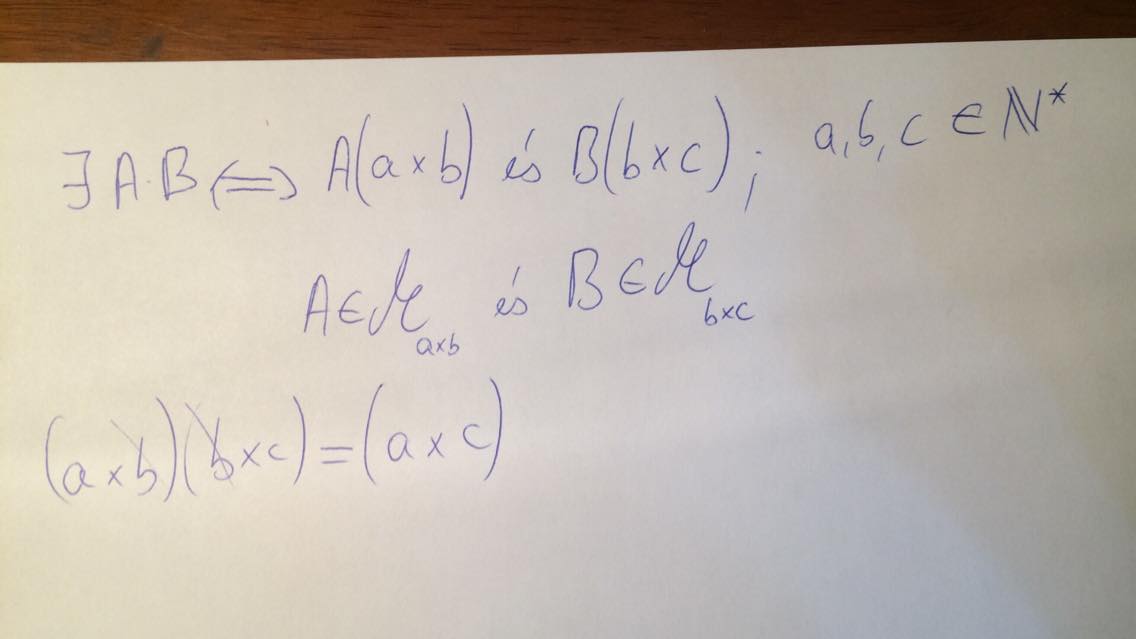 ∃ A·B ⟺ A(a×b) és B(b×c) ; a,b,c ∈ ℕ*
A∈ℳ_{a×b} és B∈ℳ_{b×c}
(a×b)(b×c)=(a×c)